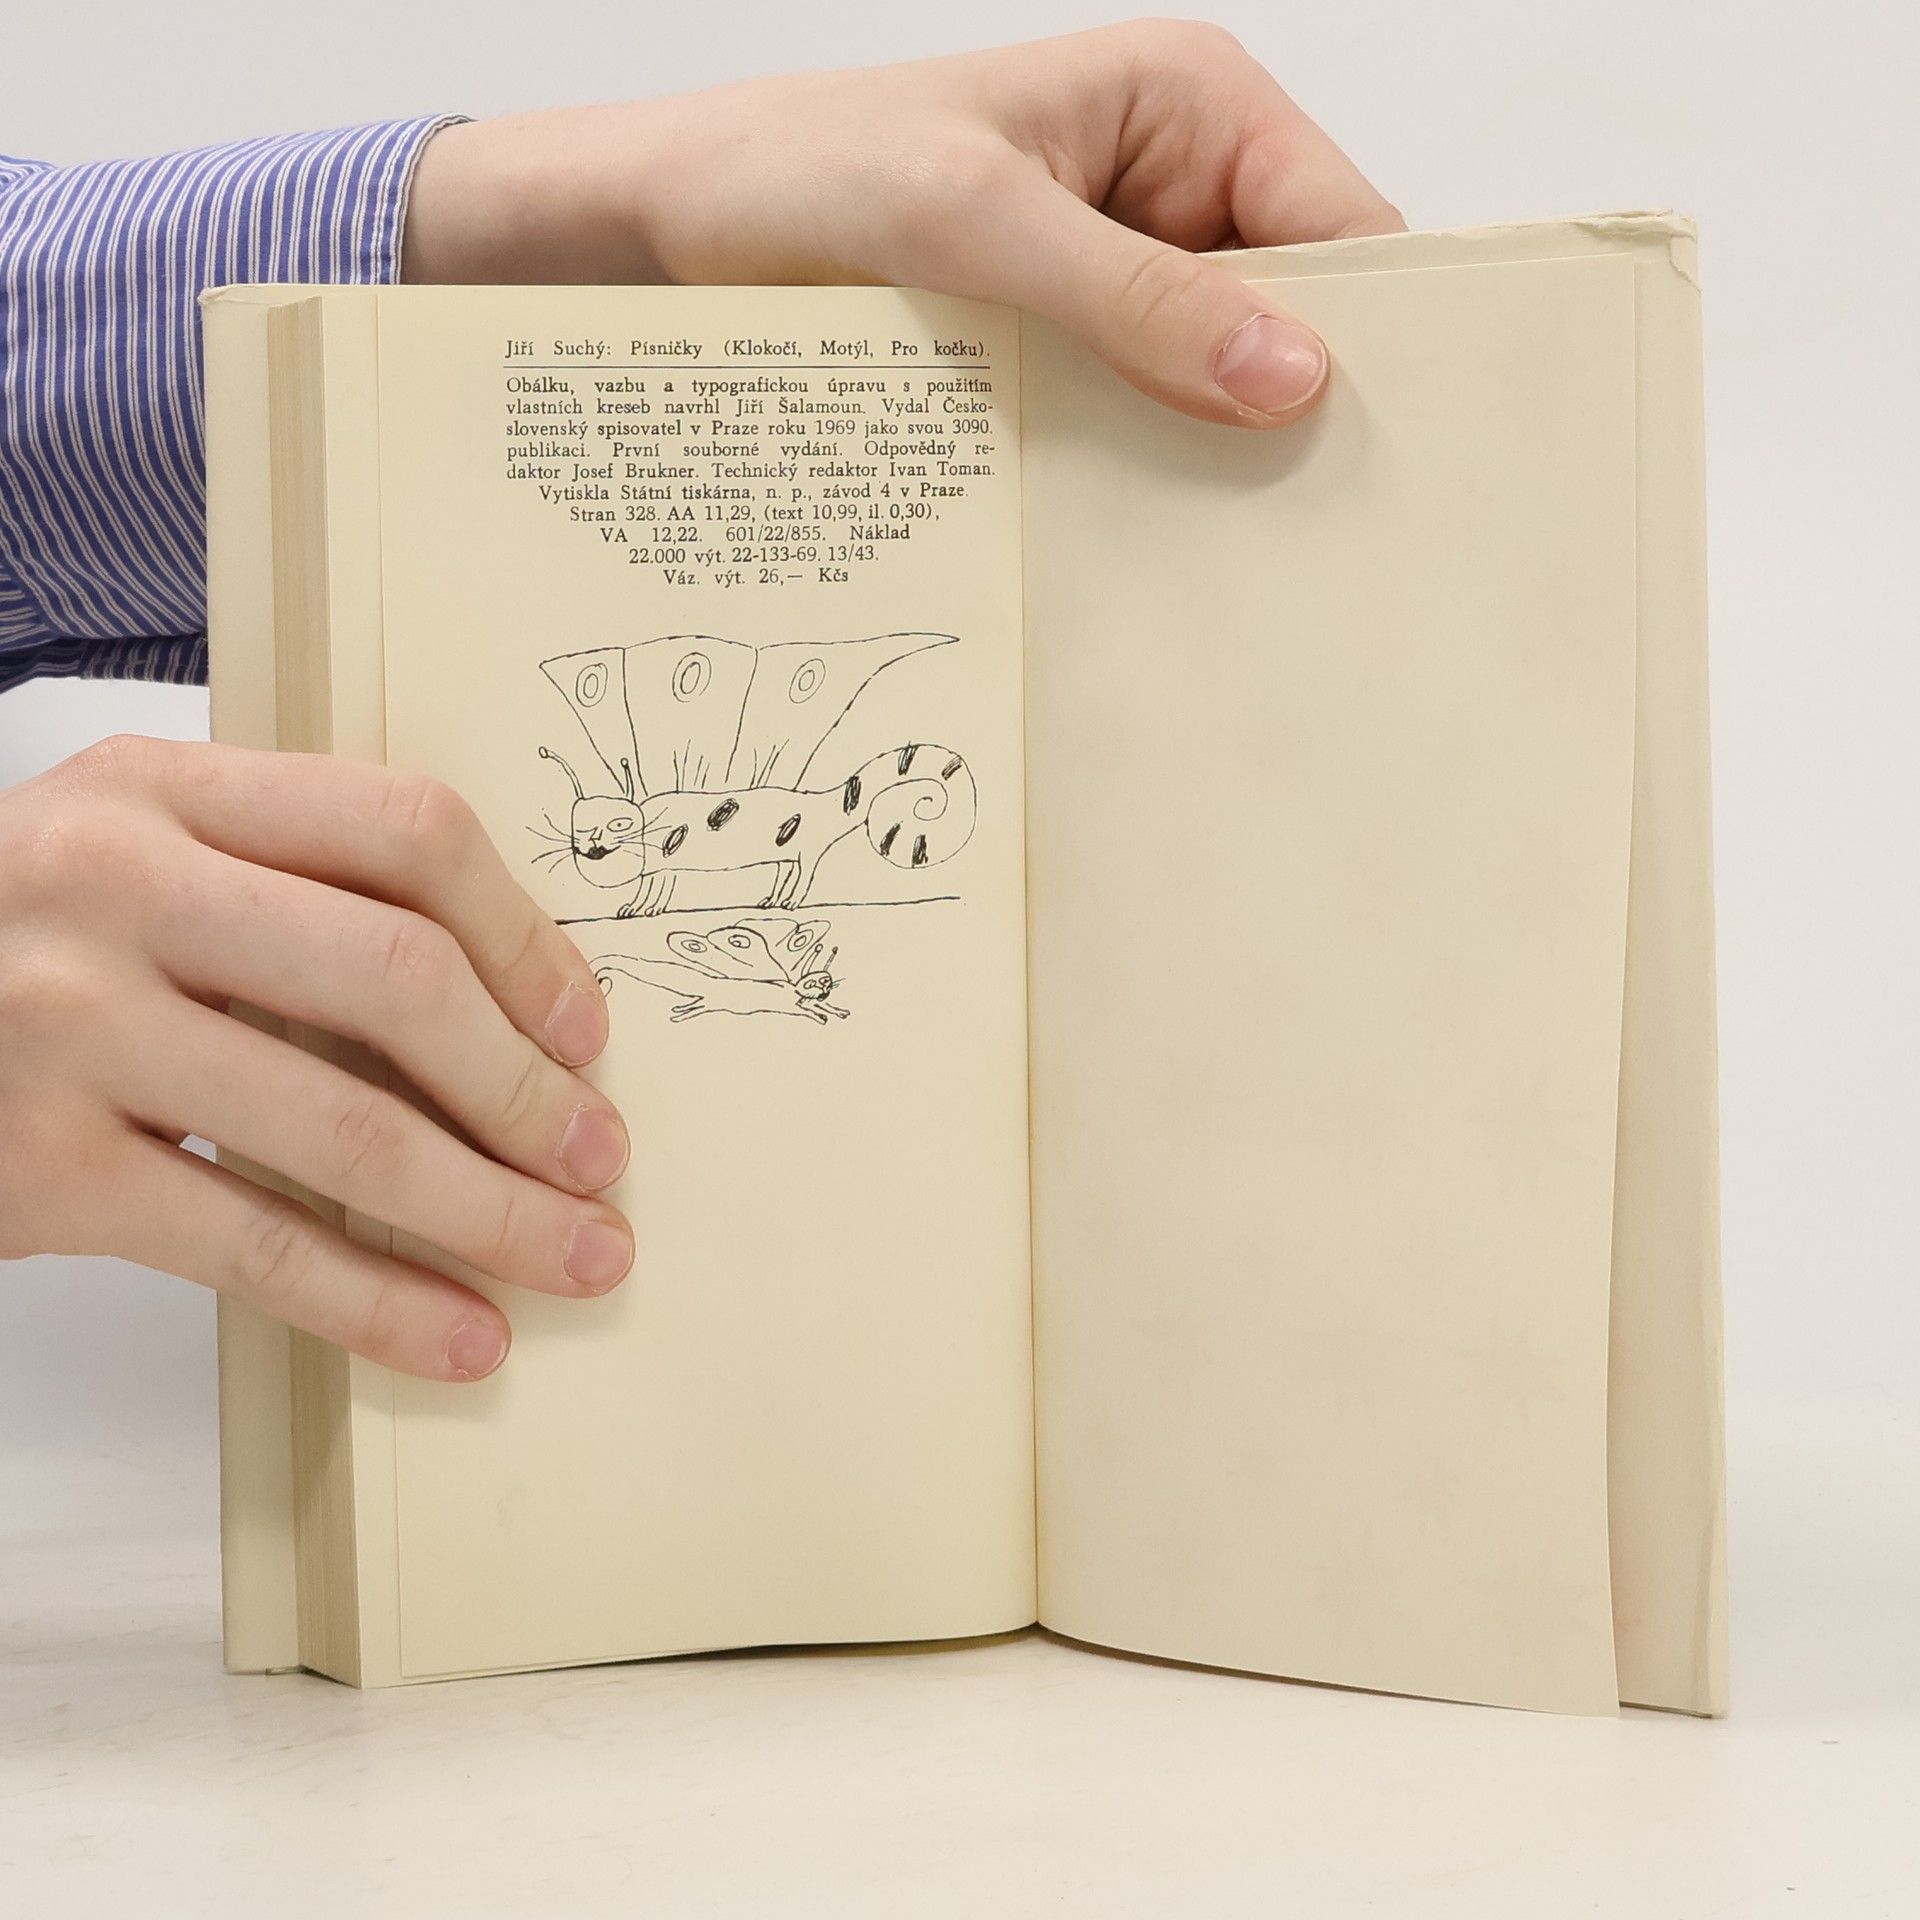 Jiří Suchý: Písničky (Klokočí, Motýl, Pro kočku).
Obálku, vazbu a typografickou úpravu s použitím
vlastních kreseb navrhl Jiří Šalamoun. Vydal Česko-
slovenský spisovatel v Praze roku 1969 jako svou 3090.
publikaci. První souborné vydání. Odpovědný re-
daktor Josef Brukner. Technický redaktor Ivan Toman.
Vytiskla Státní tiskárna, n. p., závod 4 v Praze.
Stran 328. AA 11,29, (text 10,99, il. 0,30),
VA 12,22. 601/22/855. Náklad
22.000 výt. 22-133-69. 13/43.
Váz. výt. 26,— Kčs